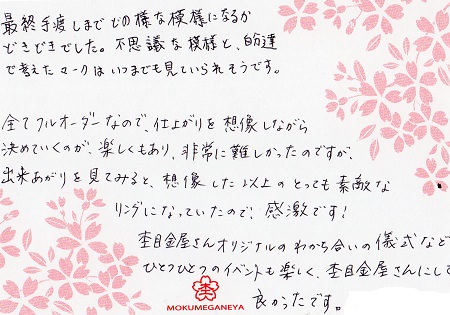 最終手渡しまでどの様な模様になるか
どきどきでした。不思議な模様と、自分達
で考えたマークはいつまでも見ていられそうです。
全てフルオーダーなので、仕上がりを想像しながら
決めていくのが、楽しくもあり、非常に難しかったのですが、
出来あがりを見てみると、想像した以上のとっても素敵な
リングになっていたので、感激です!
杢目金屋さんオリジナルのわかち合いの儀式など
ひとつひとつのイベントも楽しく、杢目金屋さんにして
良かったです。
MOKUMEGANEYA